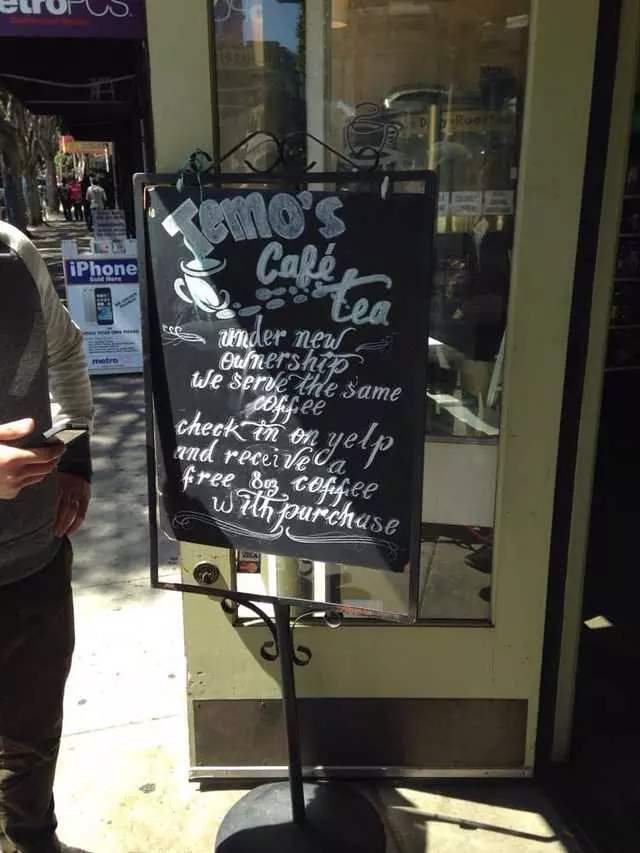 etroPCS.
Temo's
Café
tea
under new
ownership
we serve the same
coffee
check in on yelp
and receive a
free 8oz coffee
with purchase
iPhone
Sold Here
metro